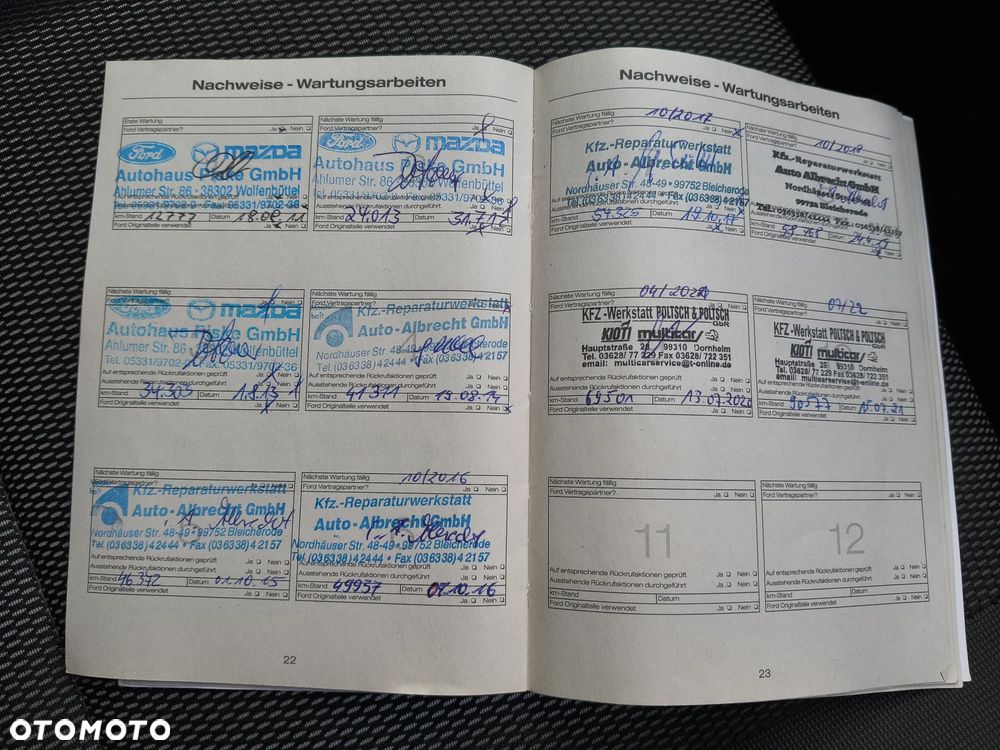 Nachweise - Wartungsarbeiten
Erste Wartung
Ford Vertragspartner? Ja Nein
Ford mazda
Autohaus GmbH
Ahlumer Str. 86 - 38302 Wolfenbüttel
Tel. 05331/9702-0 Fax 05331/9702-36
km-Stand 12777 Datum 18.08.11
Ford Originalteile verwendet Ja Nein
Nächste Wartung fällig
Ford Vertragspartner? Ja Nein
Ford mazda
Autohaus GmbH
Ahlumer Str. 86 Wolfenbüttel
Tel. 05331/9702-0 05331/9702-36
Ausstehende Rückrufaktionen durchgeführt
km-Stand 24013 Datum 31.7.12
Ford Originalteile verwendet Ja Nein
Nächste Wartung fällig
Ford Vertragspartner? Ja Nein
mazda
Autohaus GmbH
Ahlumer Str. 86 Wolfenbüttel
Tel. 05331/9702-0 05331/9702-36
Auf entsprechende Rückrufaktionen geprüft
Ausstehende Rückrufaktionen durchgeführt
km-Stand 34305 Datum 1.8.13
Ford Originalteile verwendet Ja Nein
Nächste Wartung fällig
Ford Vertragspartner?
Kfz.-Reparaturwerkstatt
Auto-Albrecht GmbH
Nordhäuser Str. 48-49 - 99752 Bleicherode
Tel. (036338) 42444 • Fax (036338) 42157
Auf entsprechende Rückrufaktionen geprüft
Ausstehende Rückrufaktionen durchgeführt
km-Stand 41311 Datum 19.08.14
Ford Originalteile verwendet Ja Nein
Nächste Wartung fällig
Ford Vertragspartner? Ja Nein
Kfz.-Reparaturwerkstatt
Auto-Albrecht GmbH
Nordhäuser Str. 48-49 • 99752 Bleicherode
Tel. (036338) 42444 • Fax (036338) 42157
Auf entsprechende Rückrufaktionen geprüft
Ausstehende Rückrufaktionen durchgeführt
km-Stand 46372 Datum 01.10.15
Ford Originalteile verwendet Ja Nein
Nächste Wartung fällig 10/2016
Ford Vertragspartner? Ja Nein
Kfz.-Reparaturwerkstatt
Auto-Albrecht GmbH
Nordhäuser Str. 48-49 • 99752 Bleicherode
Tel. (036338) 42444 • Fax (036338) 42157
Auf entsprechende Rückrufaktionen geprüft
Ausstehende Rückrufaktionen durchgeführt
km-Stand 49957 Datum 07.10.16
Ford Originalteile verwendet Ja Nein
22
Nachweise - Wartungsarbeiten
Nächste Wartung fällig 10/2017
Ford Vertragspartner? Ja Nein
Kfz.-Reparaturwerkstatt
Auto-Albrecht GmbH
Nordhäuser Str. 48-49 • 99752 Bleicherode
Tel. (036338) 42444 • Fax (036338) 42157
Ausstehende Rückrufaktionen durchgeführt
km-Stand 54325 Datum 19.10.17
Ford Originalteile verwendet Ja Nein
Nächste Wartung fällig 10/2018
Ford Vertragspartner? Ja Nein
Kfz.-Reparaturwerkstatt
Auto Albrecht GmbH
99752 Bleicherode
Tel.: 036338/42444 Fax.: 036338/42157
km-Stand Datum
Ford Originalteile verwendet Ja Nein
Nächste Wartung fällig
KFZ-Werkstatt POLTSCH & POLTSCH
GbR
KIOTI multicar
Hauptstraße 28 99310 Dornheim
Tel. 03628/ 77 229 Fax 03628/ 722 351
email: multicarservice@t-online.de
Auf entsprechende Rückrufaktionen geprüft
Ausstehende Rückrufaktionen durchgeführt
km-Stand 69501 Datum 13.07.2020
Ford Originalteile verwendet Ja Nein
Nächste Wartung fällig 07/22
KFZ-Werkstatt POLTSCH & POLTSCH
GbR
KIOTI multicar
Hauptstraße 28 99310 Dornheim
Tel. 03628/ 77 229 Fax 03628/ 722 351
email: multicarservice@t-online.de
Auf entsprechende Rückrufaktionen geprüft
Ausstehende Rückrufaktionen durchgeführt
km-Stand 90577 Datum 15.07.21
Ford Originalteile verwendet Ja Nein
Nächste Wartung fällig
Ford Vertragspartner? Ja Nein
11
Auf entsprechende Rückrufaktionen geprüft
Ausstehende Rückrufaktionen durchgeführt
km-Stand Datum
Ford Originalteile verwendet Ja Nein
Nächste Wartung fällig
Ford Vertragspartner? Ja Nein
12
Auf entsprechende Rückrufaktionen geprüft
Ausstehende Rückrufaktionen durchgeführt
km-Stand Datum
Ford Originalteile verwendet Ja Nein
23
OTOMOTO